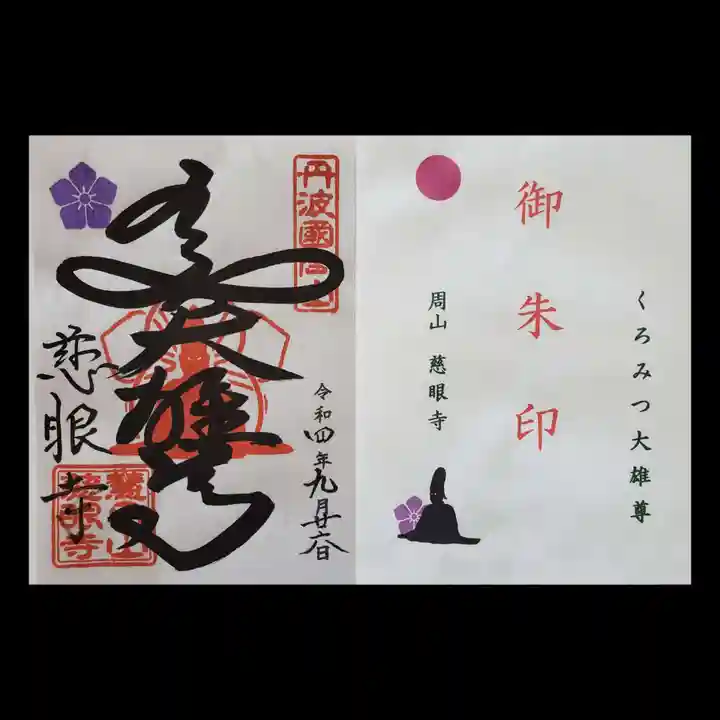 くろみつ大雄尊
御朱印
周山 慈眼寺
丹波國周山
大雄尊
令和四年九月廿六日
慈眼寺
慈眼寺